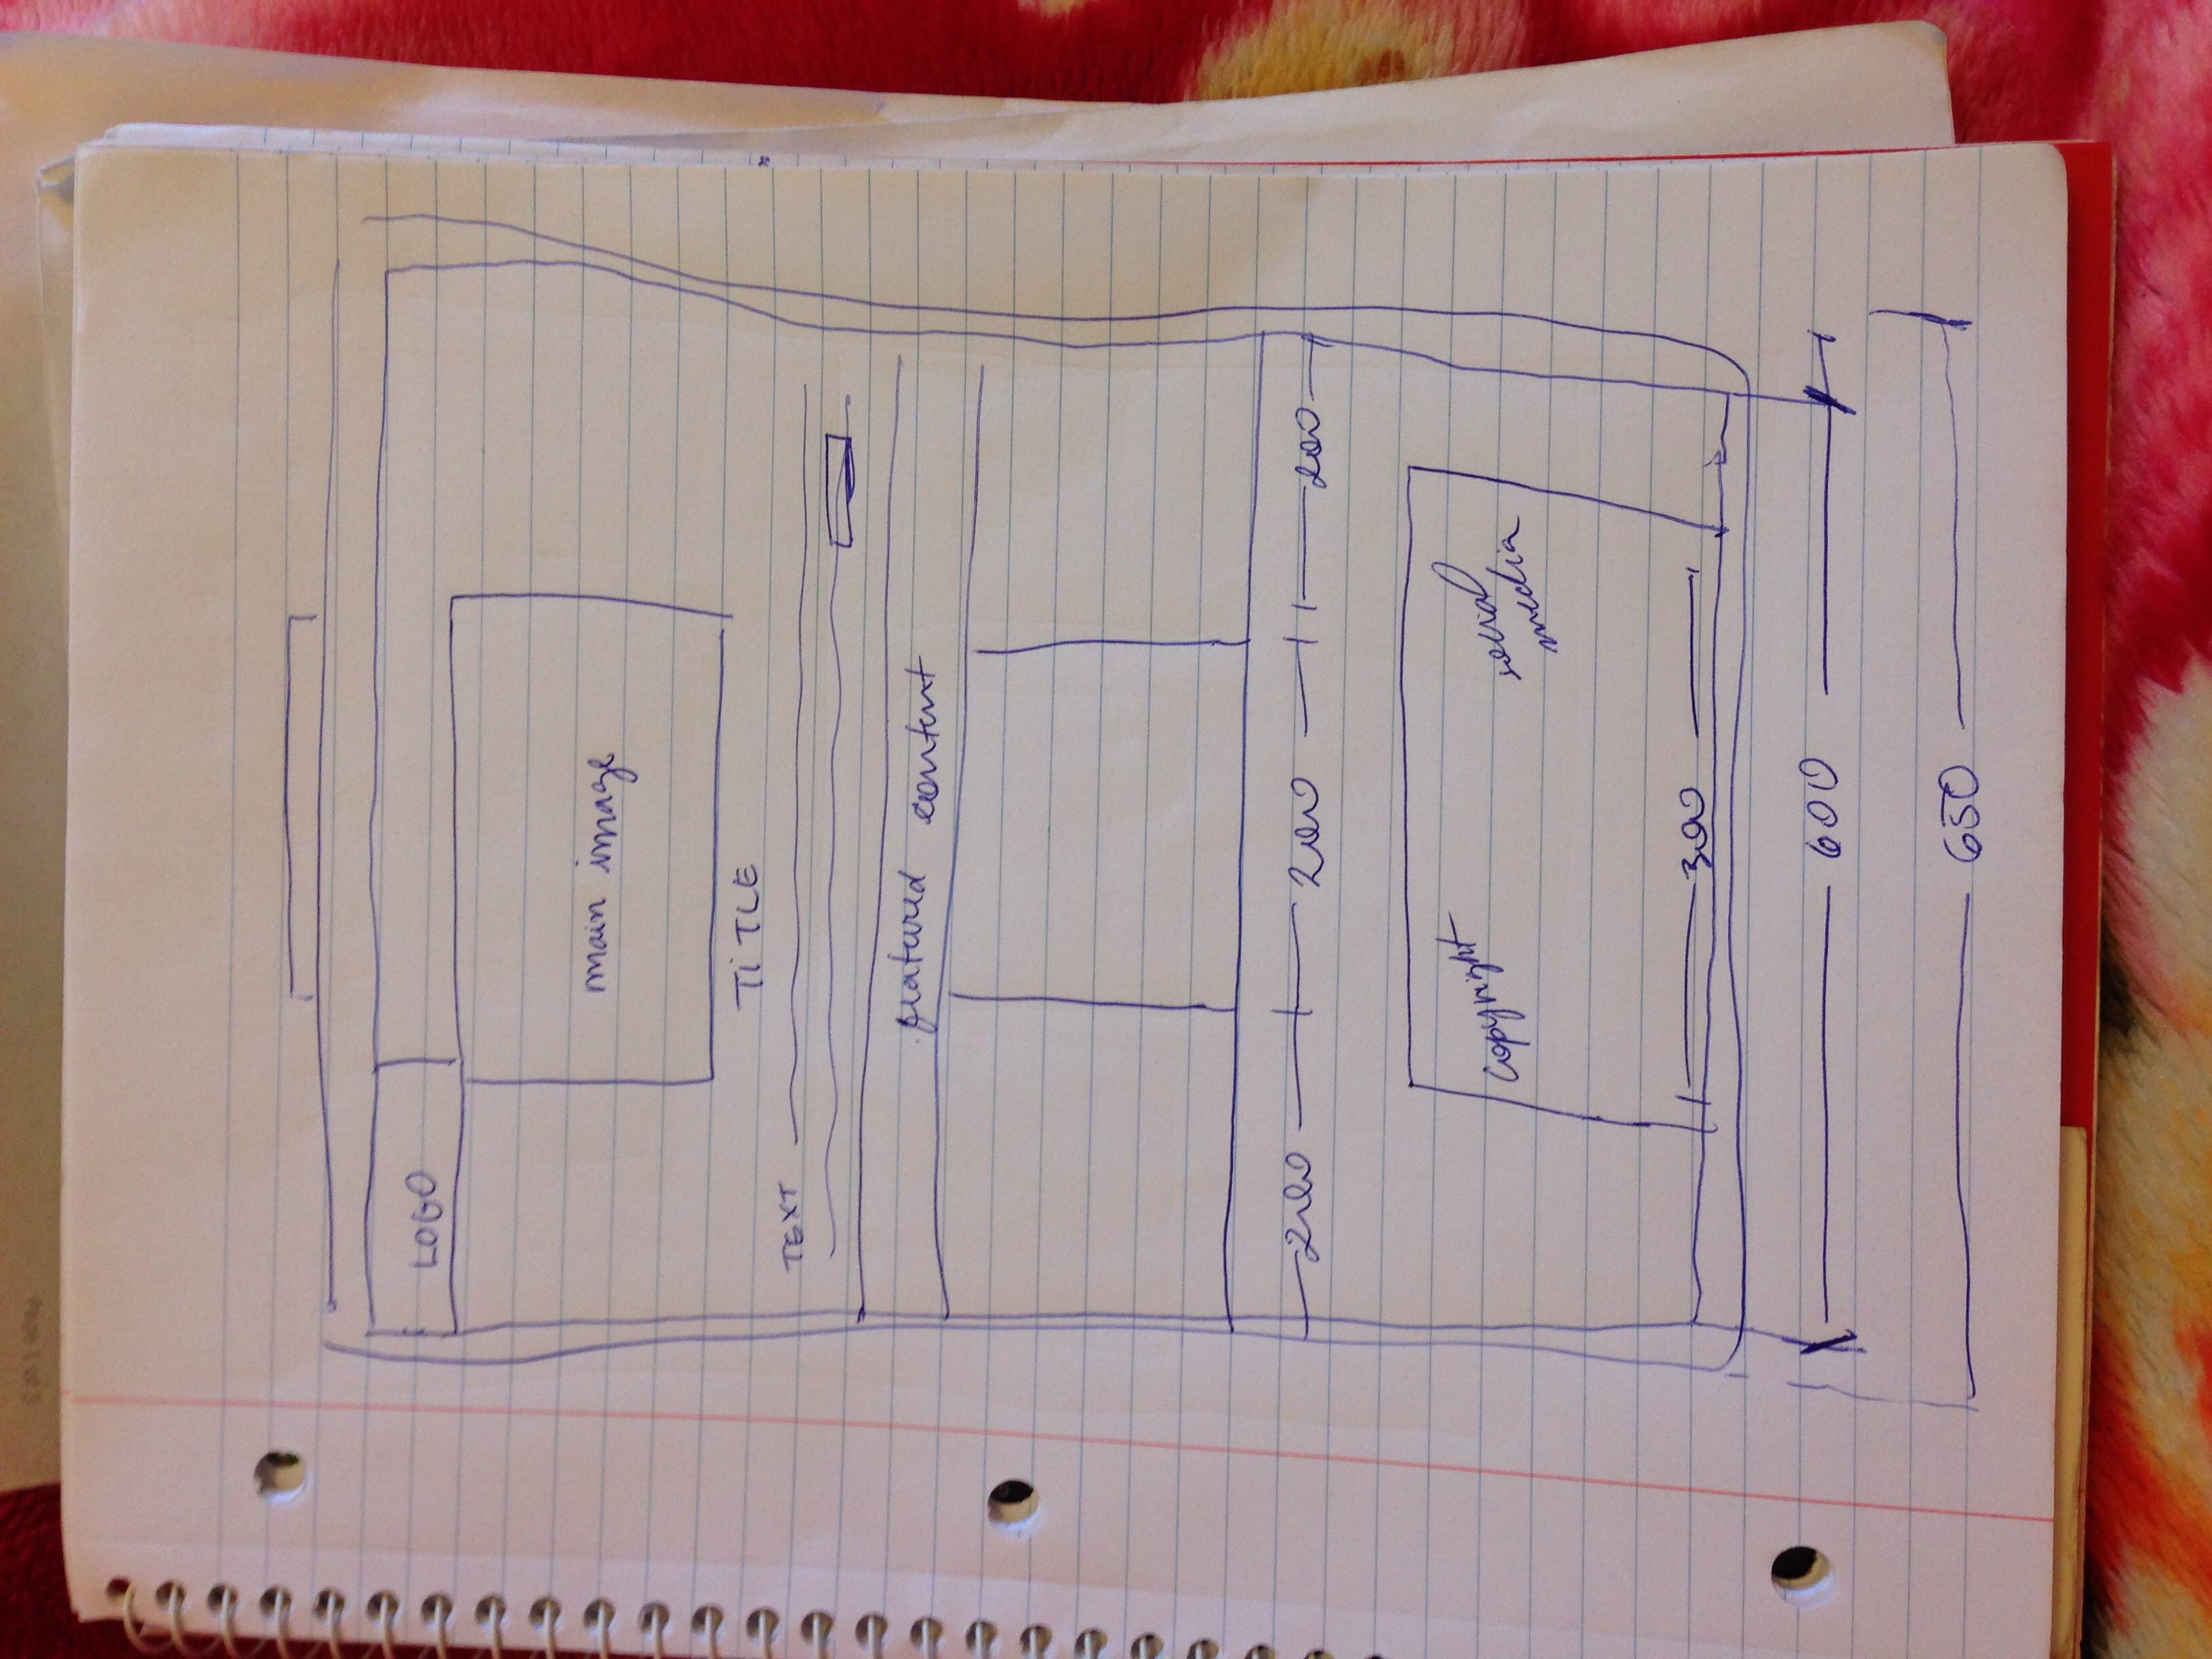 LOGO
main image
TITLE
TEXT
featured content
200 200 200
copyright social
media
300
600
650